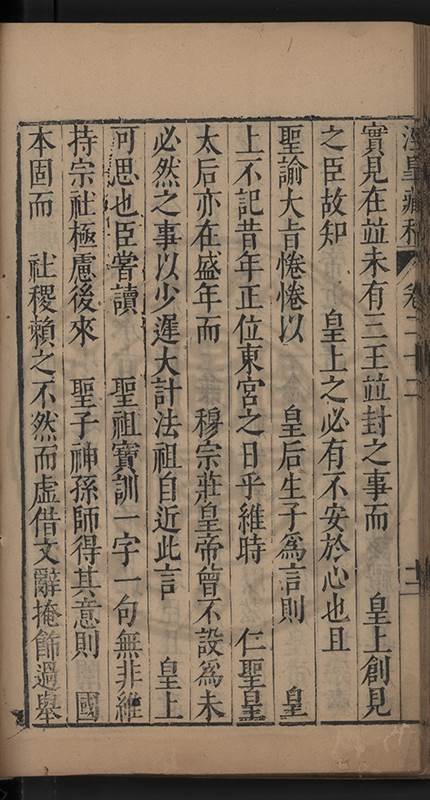 涇皋藏稿 卷二十二 十一
實見在並未有三王並封之事而 皇上創見
之臣故知 皇上之必有不安於心也且
聖諭大旨惓惓以 皇后生子爲言則 皇
上不記昔年正位東宮之日乎維時 仁聖皇
太后亦在盛年而 穆宗莊皇帝曾不設爲未
必然之事以少遲大計法祖自近此言 皇上
可思也臣嘗讀 聖祖寶訓一字一句無非維
持宗社極慮後來 聖子神孫師得其意則 國
本固而 社稷賴之不然而虛借文辭掩飾過舉